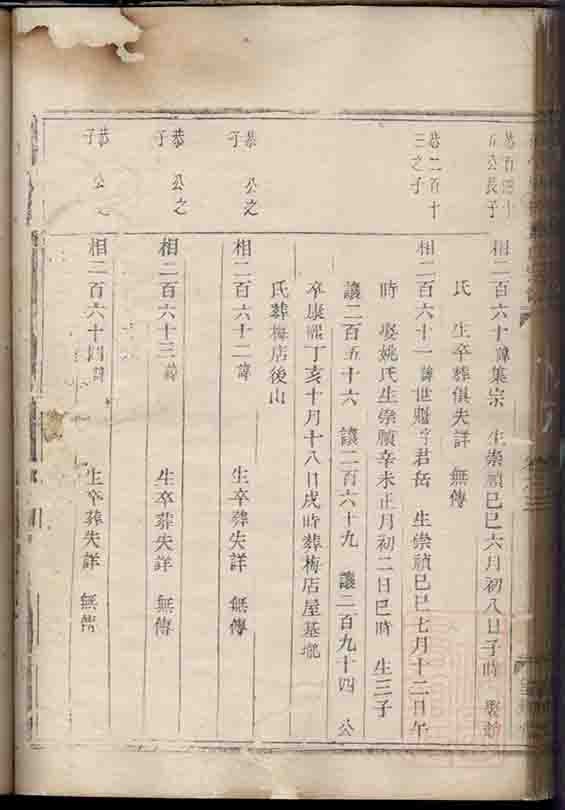 恭百四十
五公長子
相二百六十諱集宗 生崇禎己巳六月初八日子時 娶
氏 生卒葬俱失詳 無傳
恭二百十
三之子
相二百六十一諱世魁字君岳 生崇禎己巳七月十二日午
時 娶姚氏生崇禎辛未正月初二日巳時 生三子
讓二百五十六 讓二百六十九 讓二百九十四 公
卒康熙丁亥十月十八日戌時葬梅店屋基壠
氏葬梅店後山
恭 公之
子
相二百六十二諱 生卒葬失詳 無傳
恭 公之
子
相二百六十三諱 生卒葬失詳 無傳
恭 公之
子
相二百六十四諱 生卒葬失詳 無傳